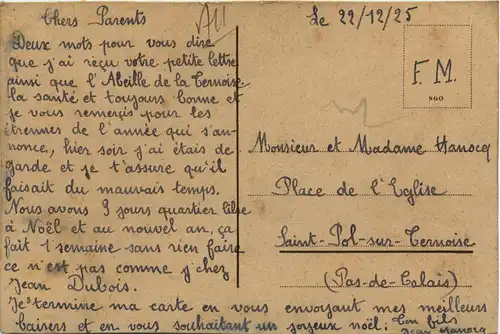 Chers Parents
Deux mots pour vous dire
que j'ai reçu votre petite lettre
ainsi que l'Abeille de la Ternoise
la santé et toujours bonne et
je vous remercie pour les
étrennes de l'année qui s'an-
nonce, hier soir j'ai étais de
garde et je t'assure qu'il
faisait du mauvais temps.
Nous avons 3 jours quartier libre
à Noël et au nouvel an, ça
fait 1 semaine sans rien faire
ce n'est pas comme j'chez
Jean Dubois.
Je termine ma carte en vous envoyant mes meilleurs
baisers et en vous souhaitant un joyeux noël: Ton fils
Le 22/12/25
F.M.
Monsieur et Madame Hanocq
Place de l'Eglise
Saint-Pol-sur-Ternoise
(Pas-de-Calais)